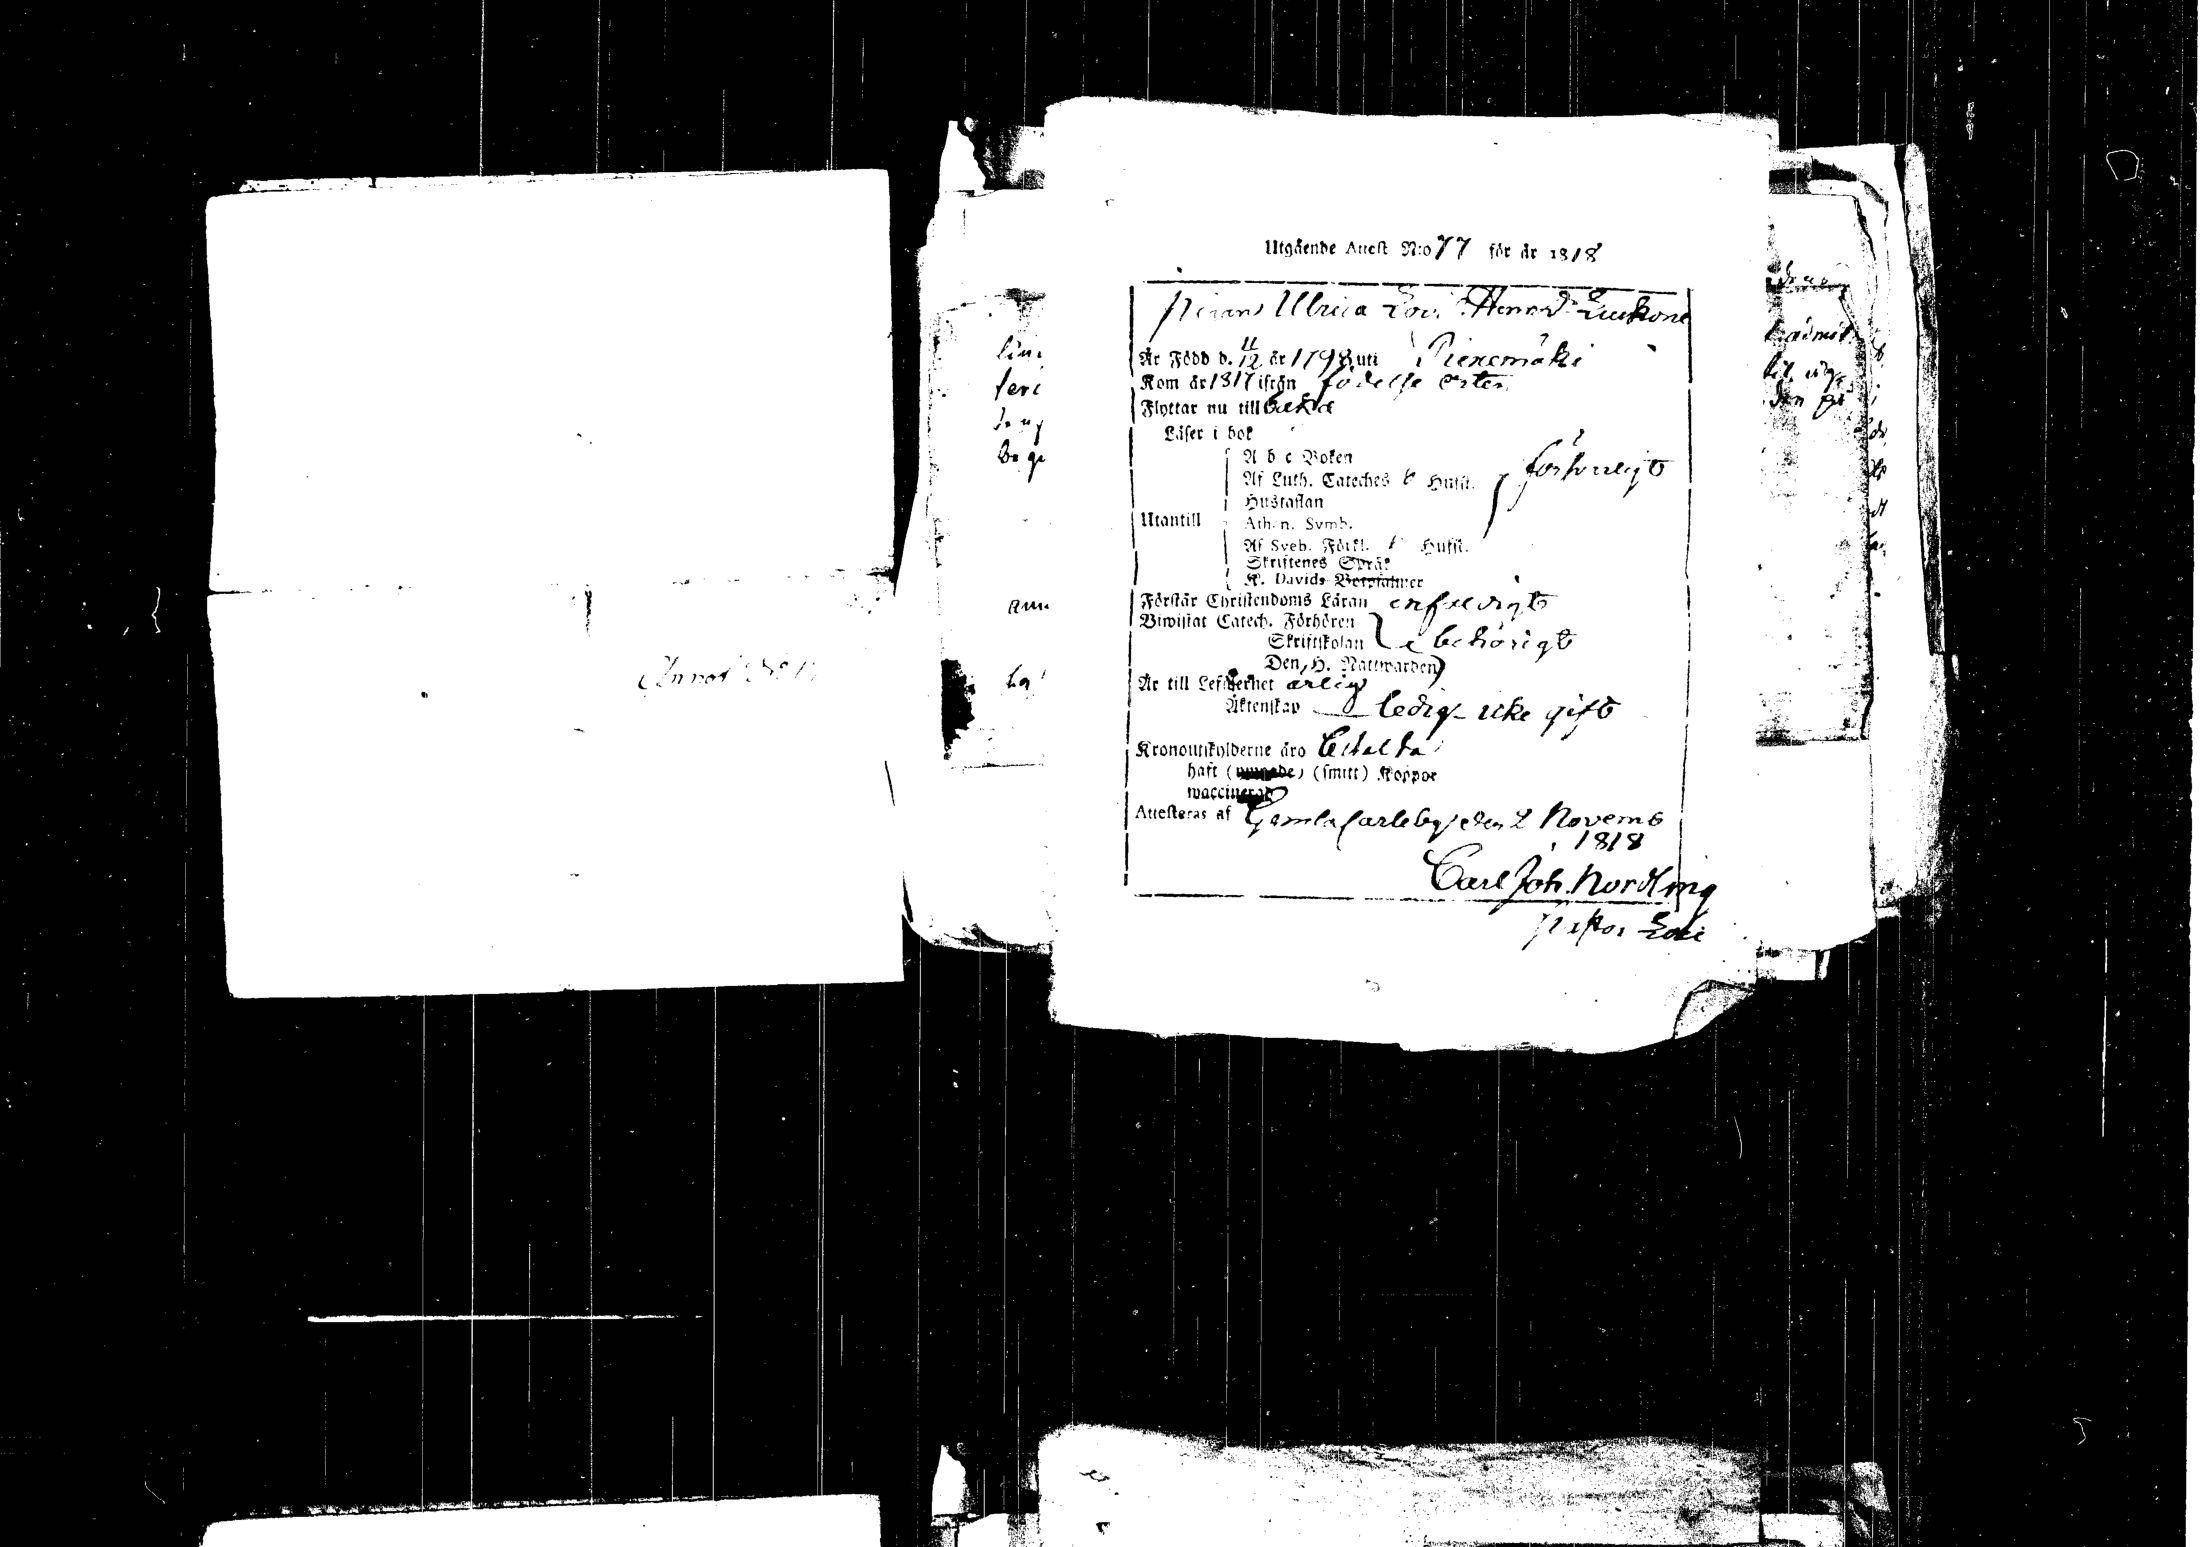 Utgående Attest N:o 77 för år 1818
Pigan Ulrica Lov. Henr.dr Luukone
Är Född d. 11/12 år 1798 uti Piexemäki
Kom år 1817 ifrån födelse orten
Flyttar nu till baka
Läser i bok
A b c Boken
Af Luth. Cateches 6 Hufst. försvarligt
Hustaflan
Utantill Athan. Symb.
Af Sveb. Förkl. Hufst.
Skriftenes Språk
K. Davids Botpsalmer
Förstår Christendoms Läran enfaldigt
Biwistat Catech. Förhören
Skriftskolan behörigt
Den H. Nattwarden
Är till Lefwernet ärlig
Äktenskap ledig icke gift
Kronoutskylderne äro betalta
haft (smitt) Koppor
waccinerad
Attesteras af Gamlacarleby den 2 Novemb
1818
Carl Joh. Nordling
Pastor Loci
Annot